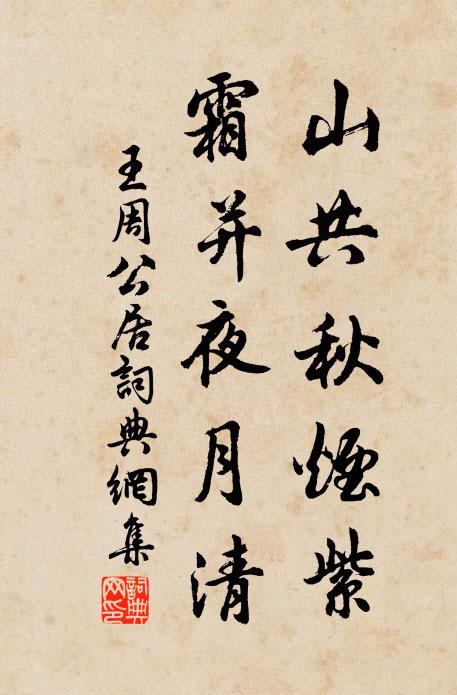 山共秋煙紫
霜并夜月清
王周公居詞典網集
詞典網印